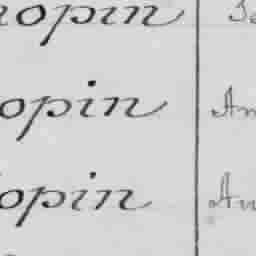 opin
opin An
opin An